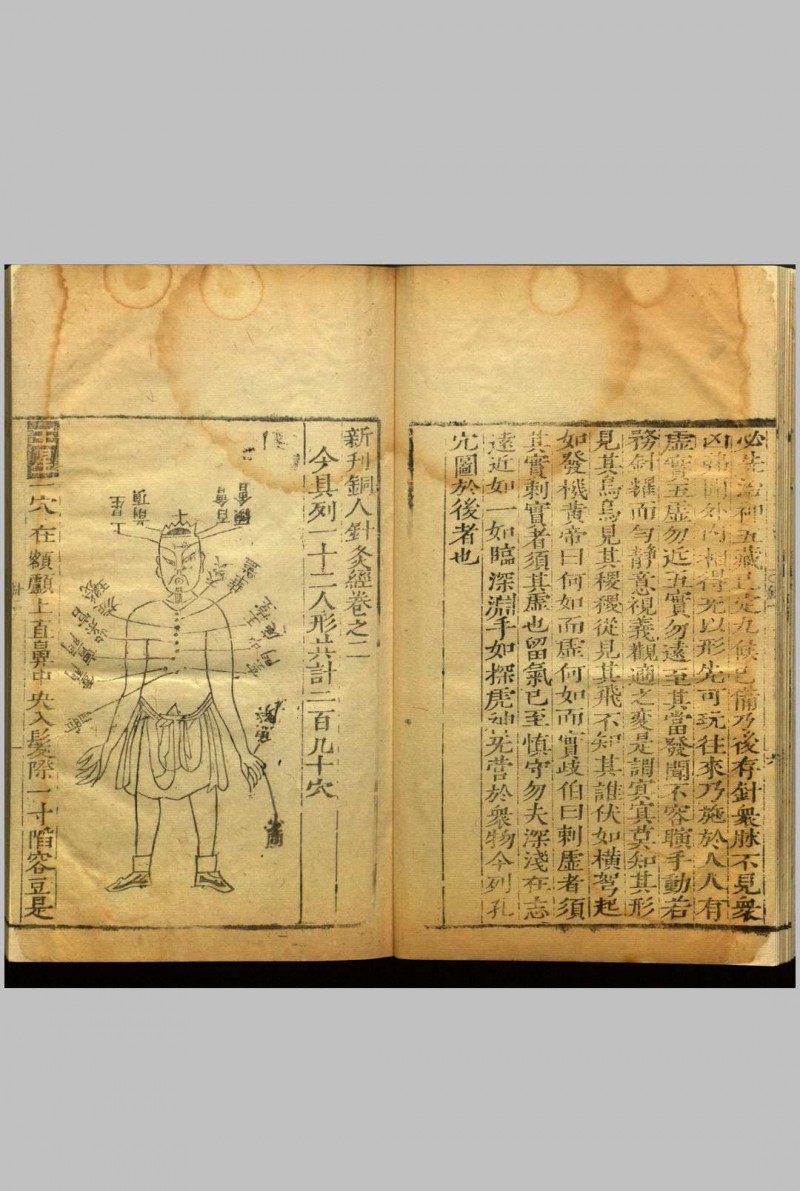 必先治神五藏已定九候已備乃後存針衆脉不見衆
凶弗聞外內相得无以形先可玩往來乃施於人人有
虛實五虛勿近五實勿遠至其當發聞不容瞚手動若
務針耀而勻靜意視義觀適之變是謂冥冥莫知其形
見其烏烏見其稷稷從見其飛不知其誰伏如橫弩起
如發機黃帝曰何如而虛何如而實歧伯曰刺虛者須
其實刺實者須其虛也留氣已至慎守勿失深淺在志
遠近如一如臨深淵手如探虎神无營於衆物今列孔
穴圖於後者也
新刊銅人針灸經卷之二
今具列一十二人形共計二百九十穴
百會
上星
一穴在額顱上直鼻中央入髮際一寸陷容豆是